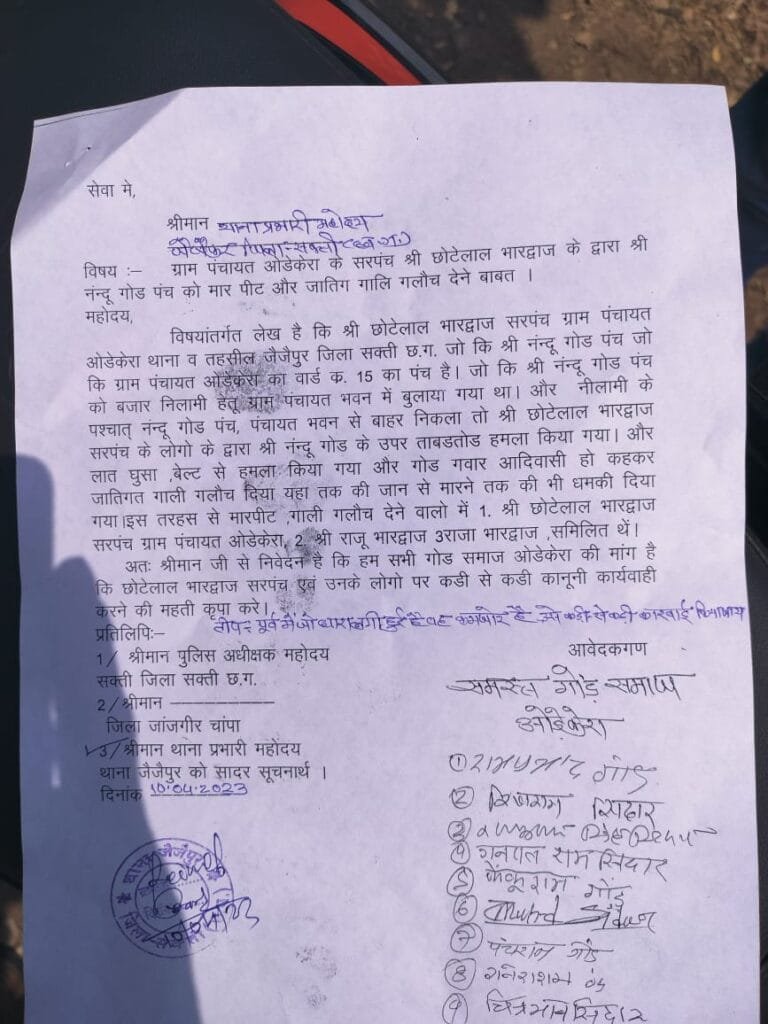 सेवा मे,
श्रीमान थाना प्रभारी महोदय
जैजैपुर जिला-सक्ती (छ.ग.)
विषय :- ग्राम पंचायत ओडेकेरा के सरपंच श्री छोटेलाल भारद्वाज के द्वारा श्री
नंन्दू गोड पंच को मार पीट और जातिग गालि गलौच देने बाबत ।
महोदय,
विषयांतर्गत लेख है कि श्री छोटेलाल भारद्वाज सरपंच ग्राम पंचायत
ओडेकेरा थाना व तहसील जैजैपुर जिला सक्ती छ.ग. जो कि श्री नंन्दू गोड पंच जो
कि ग्राम पंचायत ओडेकेरा का वार्ड क. 15 का पंच है। जो कि श्री नंन्दू गोड पंच
को बजार निलामी हेतू ग्राम पंचायत भवन में बुलाया गया था। और नीलामी के
पश्चात् नंन्दू गोड पंच, पंचायत भवन से बाहर निकला तो श्री छोटेलाल भारद्वाज
सरपंच के लोगो के द्वारा श्री नंन्दू गोड़ के उपर ताबडतोड हमला किया गया। और
लात घुसा ,बेल्ट से हमला किया गया और गोड गवार आदिवासी हो कहकर
जातिगत गाली गलौच दिया यहा तक की जान से मारने तक की भी धमकी दिया
गया।इस तरहस से मारपीट ,गाली गलौच देने वालो में 1. श्री छोटेलाल भारद्वाज
सरपंच ग्राम पंचायत ओडेकेरा, 2. श्री राजू भारद्वाज 3राजा भारद्वाज ,समिलित थें।
अतः श्रीमान जी से निवेदन है कि हम सभी गोड समाज ओडेकेरा की मांग है
कि छोटेलाल भारद्वाज सरपंच एवं उनके लोगो पर कडी से कडी कानूनी कार्यवाही
करने की महती कृपा करे।
पूर्व में जो धारा लगी हुई है वह कमजोर है उसे कडी से कडी कारवाई किया जाय
प्रतिलिपिः-
आवेदकगण
1/ श्रीमान पुलिस अधीक्षक महोदय
सक्ती जिला सक्ती छ.ग.
समस्त गोंड़ समाज
2/श्रीमान ----------
ओड़ेकेरा
जिला जांजगीर चांपा
3/श्रीमान थाना प्रभारी महोदय
थाना जैजैपुर को सादर सूचनार्थ ।
दिनांक 10.04.2023
① रामप्रसाद गोंड
② सिदार
③
④ गनपत राम सिदार
⑤ राम गोंड
⑥
⑦ पंचराम गोंड
⑧ गनेशराम
⑨ चित्रभान सिदार
थाना जैजैपुर
जिला